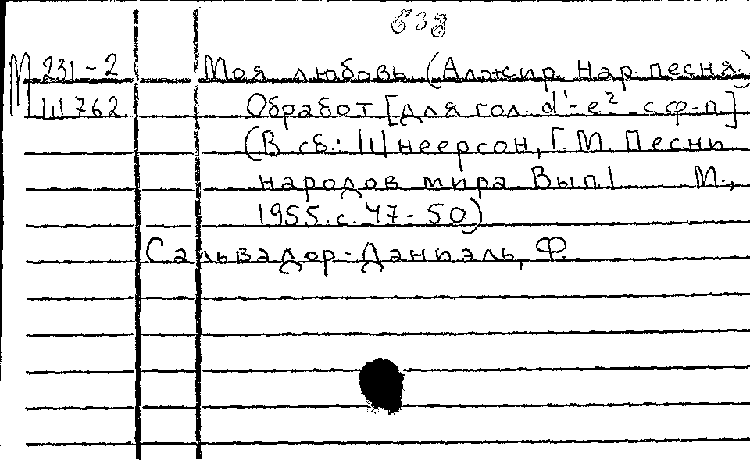 638
М 231-2 Моя любовь (Алжир нар. песня.)
Ш 762 Обработ [для гол. d¹-e² с ф-п]
(В сб.: Шнеерсон, Г. М. Песни
народов мира Вып 1 М.,
1955. с. 47-50)
Сальвадор-Даниэль, Ф.